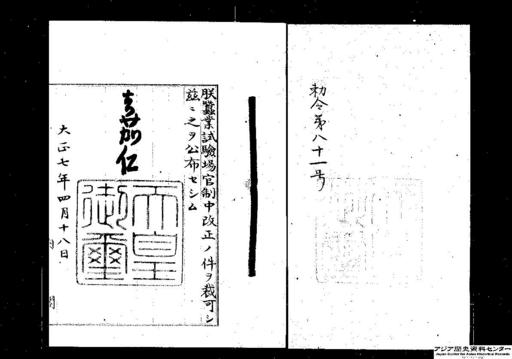 勅令第八十一号
朕蠶業試驗場官制中改正ノ件ヲ裁可シ
茲ニ之ヲ公布セシム
嘉仁
天皇御璽
大正七年四月十八日
アジア歴史資料センター
Japan Center for Asian Historical Records